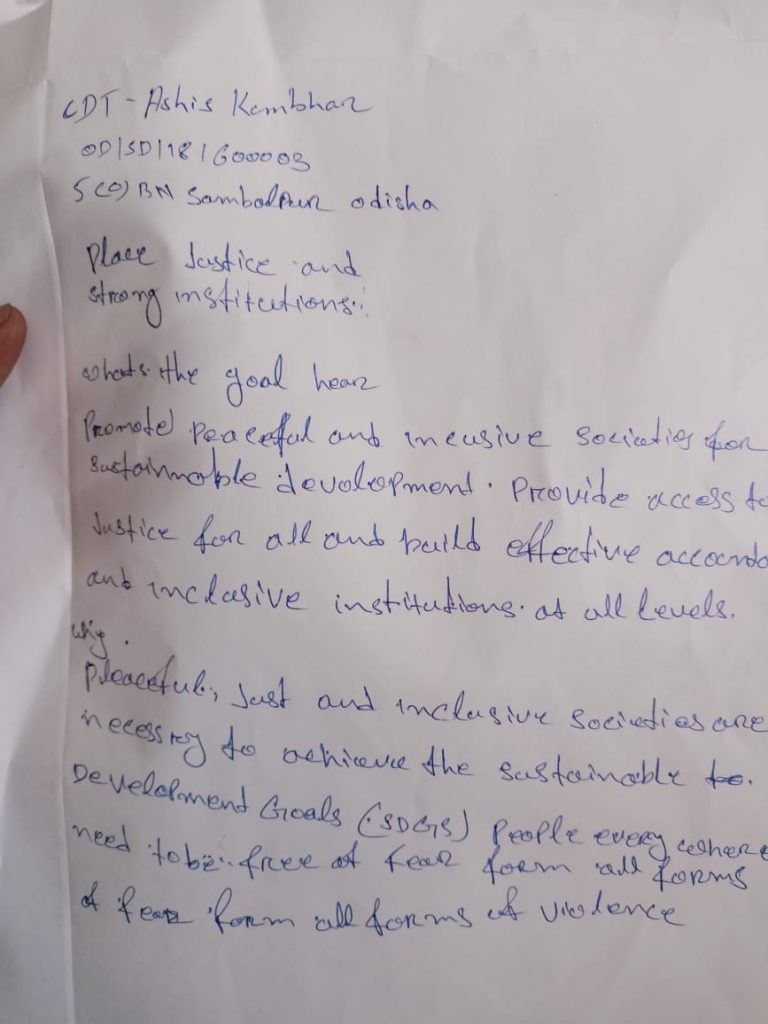 CDT - Ashis Kumbhar
OD/SD/18/600003
5(O) BN Sambalpur odisha
Place Justice and
strong institutions.
whats the goal hear
Promote peaceful and incusive societies for
sustainmable devolopment. Provide access to
Justice for all and build effective accounta
and inclusive institutions. at all levels.
why.
Pleaceful, Just and inclusive societies are
necessrey to achieve the sustainable to.
Development Goals (SDGS) People every where
need to be free of fear form all forms
of fear form all forms of violence